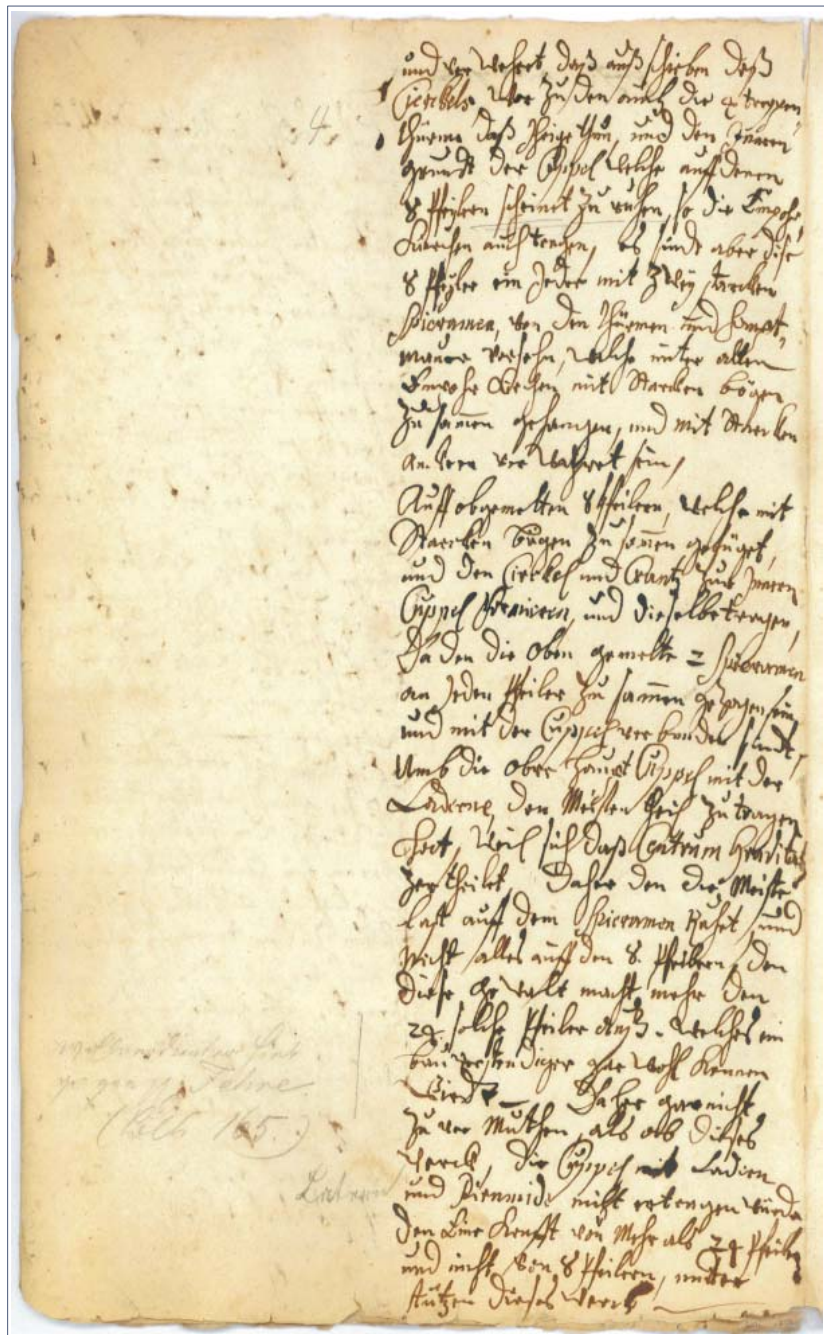 4.
und verwehret daß außschieben deß
Cierkels, Wor zu den auch die 4 treppen
thürme daß Ihrige thun, und den Inneren
grundt der Cuppel welche auff denen
8 Pfeilern scheinet zu ruhen, so die Empohr
Kierchen auch tragen, es sindt aber diese
8 Pfeyler ein Jeder mit Zwey starcken
Spieramen, von den thürmen und Haupt,
mauer versehn, welche unter allen
Emrohr Kierchen mit Starcken bögen
Zu samen gehangen, und mit Starcken
anckern ver wahret sein,
Auff obgemelten 8 Pfeilern, welche mit
Starcken bögen Zu samen gefüget,
und den Cierkel und Crantz zur Inneren
Cuppel formieren, und dieselbe tragen,
Da den die oben gemelte 2 Spieramen
an Jeden Pfeiler Zu sammen gezogen sein
und mit der Cuppel verbunden sindt,
Umb die obre Haupt Cuppel mit der
Laderne, den Meisten theil Zu tragen
hat, weil sich daß Centrum Gravitat
zertheilet, Daher den die Meiste
Last auff dem Spieramen Ruhet, und
nicht alles auff den 8. Pfeilern, den
diese gewalt macht mehr den
24. solche Pfeiler auß. welches ein
bau verstendiger gar wohl Kennen
wird. Daher gar nicht
Zu ver Muthen, als ob dieses
werck, die Cuppel mit Ladern
und Piramide nicht ertragen würde
den Eine Krafft von Mehr als 24 Pfeiler
und nicht von 8 Pfeilern, unter
stützen dieses werck
Fehne.
165.)
Latern